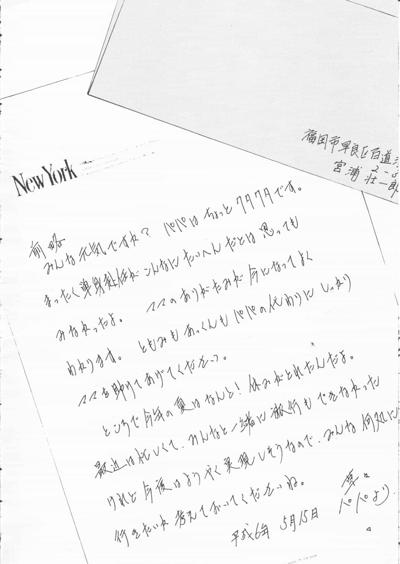 福岡市早良区百道
宮浦 壮一郎
New York
前略
みんな元気ですか? パパはちょっとクタクタです。
まったく単身赴任がこんなにたいへんだとは思っても
みなかったよ。 ママのありがたみが今になってよく
わかります。 ともみもあっくんもパパの代わりにしっかり
ママを助けてあげてください。
ところで今年の夏はなんと! 休みがとれたんだよ。
最近は忙しくて、みんなと一緒に旅行もできなかった
けれど今後はようやく実現しそうなので、みんな何処に
行きたいか考えておいてくださいね。
草々
平成6年 5月15日 パパより